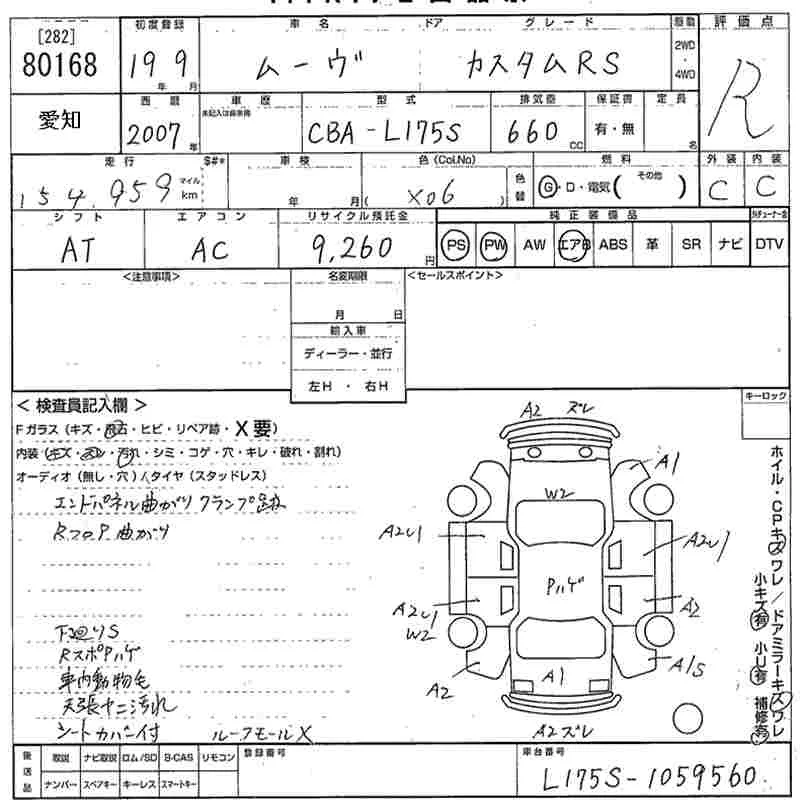 [282]
80168
愛知
初度登録
19 9
年 月
車名 ドア グレード
ムーヴ カスタムRS
駆動
2WD
・
4WD
評価点
R
西暦
2007 年
車歴
未記入は自家用
型式
CBA-L175S
排気量
660 CC
保証書
有・無
定員
名
走行
154,959
マイル
km
S#*
車検
年 月
色(Col.No)
( X06 )
色替
燃料
G・D・電気( その他 )
外装
C
内装
C
シフト
AT
エアコン
AC
リサイクル預託金
9,260 円
純正装備品
PS PW AW エアB ABS 革 SR ナビ DTV
<注意事項>
名変期限
月 日
輸入車
ディーラー・並行
左H・右H
<セールスポイント>
<検査員記入欄>
Fガラス(キズ・飛石・ヒビ・リペア跡・X要)
内装(キズ・スレ・汚れ・シミ・コゲ・穴・キレ・破れ・割れ)
オーディオ(無し・穴)/タイヤ(スタッドレス)
エンドパネル曲がり クランプ跡
RフロP曲がり
下回りS
RスポPハゲ
車内動物毛
天張ヤニ汚れ
シートカバー付 ルーフモールX
A2 ズレ
A1
W2
A2U1
A2U1
Pハゲ
A2U1
W2
A2
A2
A1
A1S
A2ズレ
キーロック
ホイル・CPキズワレ/ドアミラーキズワレ
小キズ有 小U有 補修有
後送品
取説 ナビ取説 ロム/SD B-CAS リモコン
ナンバー スペアキー キーレス スマートキー
登録番号
車台番号
L175S-1059560